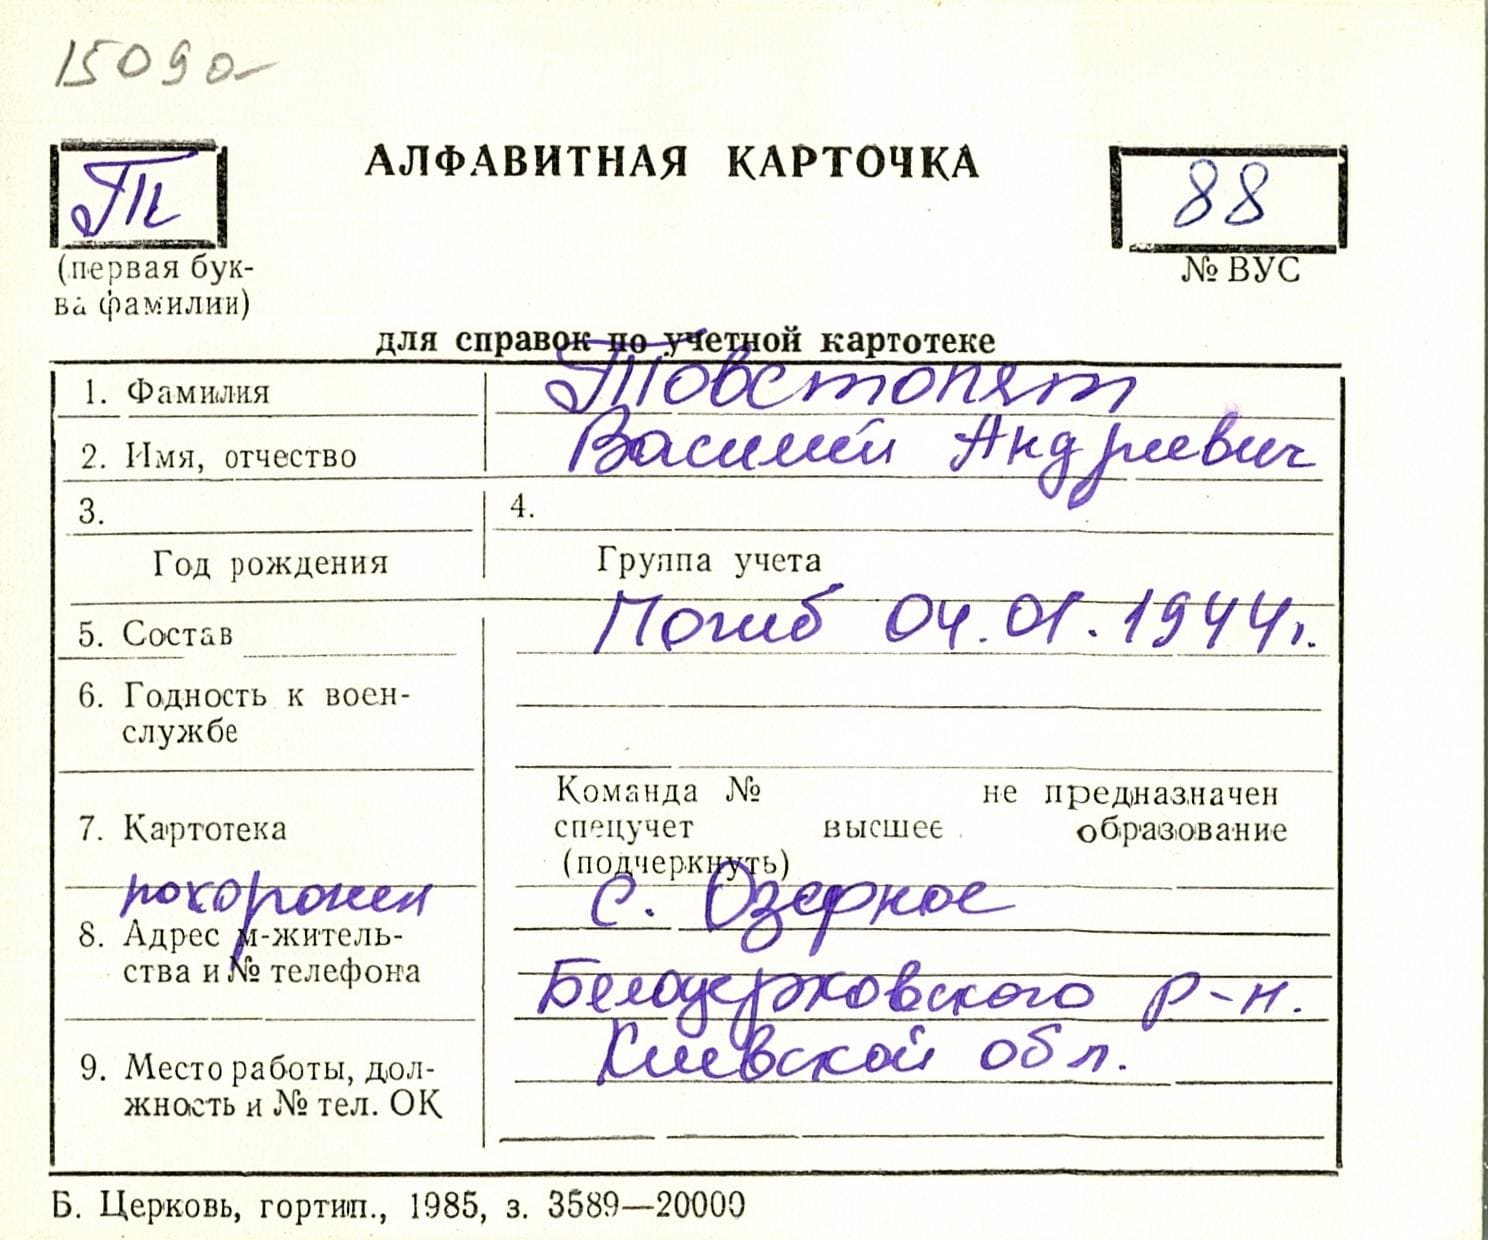 15090-
Т
АЛФАВИТНАЯ КАРТОЧКА
88
(первая бук-
ва фамилии)
№ ВУС
для справок по учетной картотеке
1. Фамилия Товстопят
2. Имя, отчество Василий Андреевич
3. 4.
Год рождения Группа учета
5. Состав Погиб 04.01.1944г.
6. Годность к воен-
службе
Команда № не предназначен
7. Картотека спецучет высшее образование
(подчеркнуть)
похоронен с. Озерное
8. Адрес м-житель-
ства и № телефона
Белоцерковского р-н.
Киевской обл.
9. Место работы, дол-
жность и № тел. ОК
Б. Церковь, гортип., 1985, з. 3589—20000